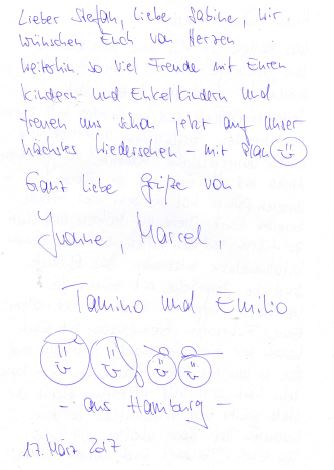 Lieber Stefan, liebe Sabine, wir
wünschen Euch von Herzen
weiterhin so viel Freude mit Euren
Kindern und Enkelkindern und
freuen uns schon jetzt auf unser
nächstes Wiedersehen - mit Plan
Ganz liebe Grüße von
Yvonne, Marcel,
Tamino und Emilio
- aus Hamburg -
17. März 2017